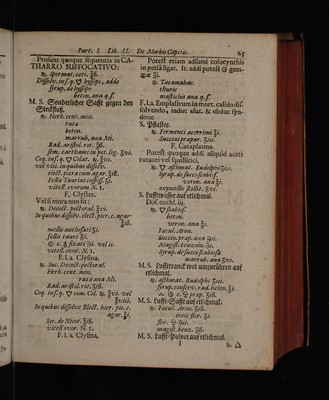 Part. I. Lib. II. De Morbis Capitis. 65
Prosunt quoque sequentia in CA-
THARRO SUFFOCATIVO:
℞. spermat. ceti. ʒß.
Dissolv. in s.q. hyssopi, adde
syrup. de hyssopo
beton. ana q. s.
M. S. Sonderlicher Safft gegen den
Steckfluß.
℞. Herb. cent. min.
ruta
beton.
marrub. ana Mi.
Rad. aristol. rot. ʒß.
sem. carthami in pet. lig. ʒvi.
Coq. in s.q. Colat. ℞. ʒvi.
vel viii. in quibus dissolv.
elect. piera cum agar. ʒß.
Fellis Taurini inspiss. ʒi.
vitell. ovorum N. 1.
F. Clyster.
Vel si mora non sit:
℞. Decoct. pectoral. ʒvi.
In quibus dissolv. elect. pier. c. agar
ʒiß.
mellis anthosati ʒi.
fellis tauri ʒi.
vel ii.
vitell. ovor. N. 1.
F. l. a. Clysma.
℞. Suc. Decoct. pectoral.
Herb. cent. min.
ruta ana Mi.
Rad. aristol. rot. ʒiß.
Coq. in s. q. com. Col. ℞. ʒvi. vel
ʒviii.
In quibus dissolve Elect. hier. pic. c.
agar. ʒi.
Syr. de Nicot. ʒiß.
vitell ovor N. 1.
F. l. a. Clysma.
Potest etiam assumi colocynthis
in petia ligat. It. addi potest gem-
℞. Tacamahac.
thuris
mastichis ana q. s.
F. l. a. Emplastrum in mort. calido dis-
solvendo, indue alut. & obduc syn-
done
S. Pflaster.
℞. Fermenti acerrimi ʒi.
Succini praepar. ʒiii.
F. Cataplasma.
Potest quoque addi aliquid aceti
rutacei vel squillitici,
℞. asthmat. Rudolphi ʒiii.
Syrup. de succi stabisf.
veron. ana ʒi.
oxymellis scillit. ʒvi.
S. Lufftwasser auf etlichmal
Dos. cochl. iij.
℞.
beton.
veron. ana ʒi.
Facul. Aron.
Succin. praep. ana
Magist. benzoin.
Syrup. de succo
marrub. ana ʒvi.
M. S. Lufftranck wol umzurühren auf
etlichmal.
℞. asthmat. Rudolphi ʒiii.
syrup. conserv. rad. helen. ʒi.
praep. ʒiß.
M. S. Lufft-Safft auf etlichmal.
℞. Facul. Aron. ʒiß.
ireos flor. ʒi.
flor.
magist. benz. ʒß.
M. S. Lufft-Pulver auf etlichmal
I ℞.